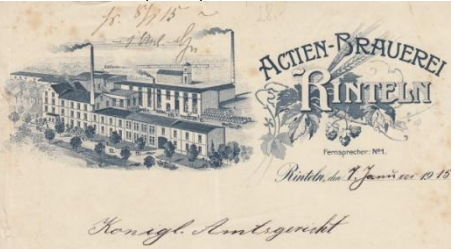 8/1 15
ACTIEN-BRAUEREI
RINTELN
Fernsprecher: № 1.
Rinteln, den 7. Januar 1915
Königl. Amtsgericht